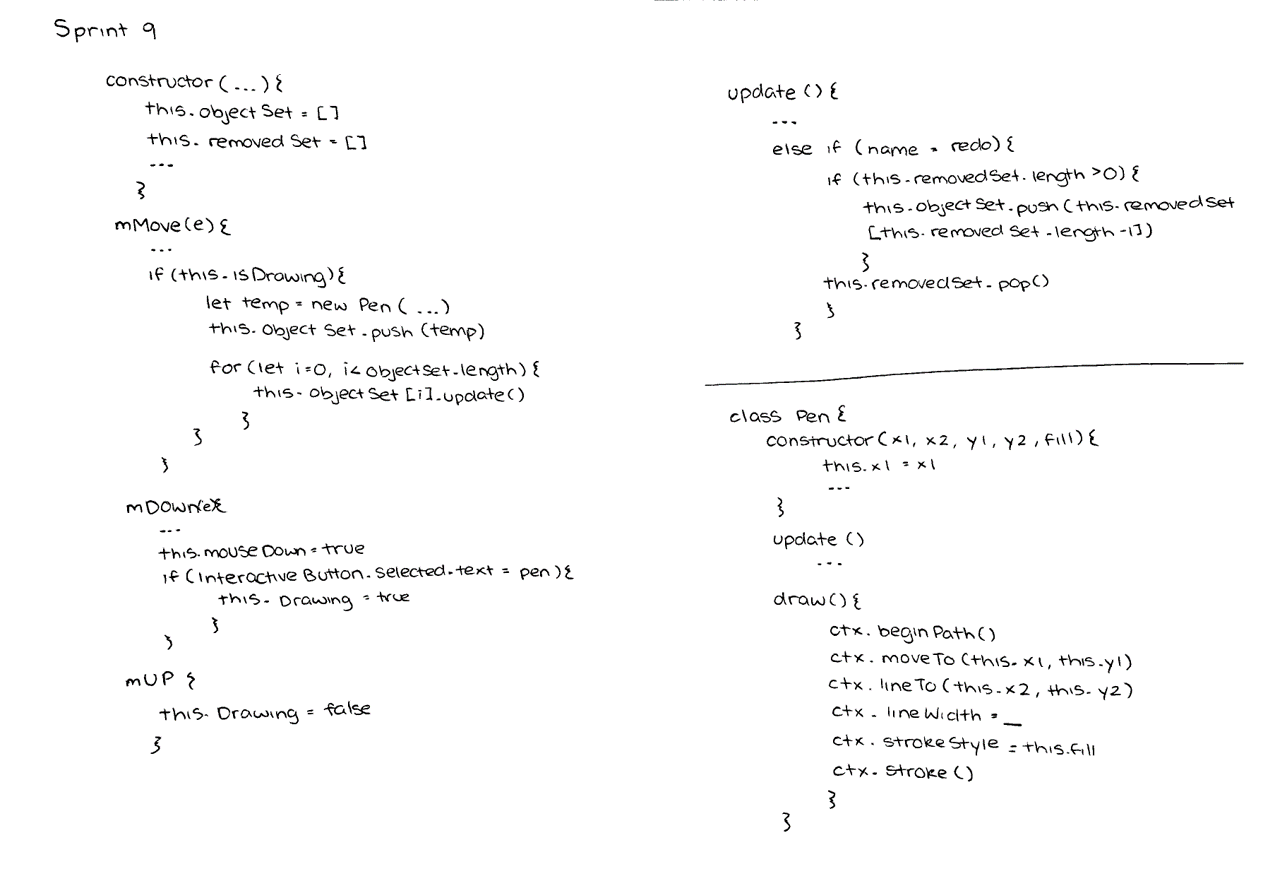 Sprint 9
constructor (...) {
this.objectSet = []
this.removedSet = []
...
}
mMove(e) {
...
if (this.isDrawing) {
let temp = new Pen (...)
this.objectSet.push (temp)
for (let i=0, i< objectSet.length) {
this.objectSet [i].update()
}
}
}
mDown(e){
...
this.mouseDown = true
if (InteractiveButton.selected.text = pen) {
this.Drawing = true
}
}
mUP {
this.Drawing = false
}
update () {
...
else if (name = redo) {
if (this.removedSet.length >0) {
this.objectSet.push (this.removedSet
[this.removedSet.length -1])
}
this.removedSet.pop()
}
}
class Pen {
constructor (x1, x2, y1, y2, fill) {
this.x1 = x1
...
}
update ()
...
draw() {
ctx.beginPath()
ctx.moveTo (this.x1, this.y1)
ctx.lineTo (this.x2, this.y2)
ctx.lineWidth = _
ctx.strokeStyle = this.fill
ctx.stroke ()
}
}